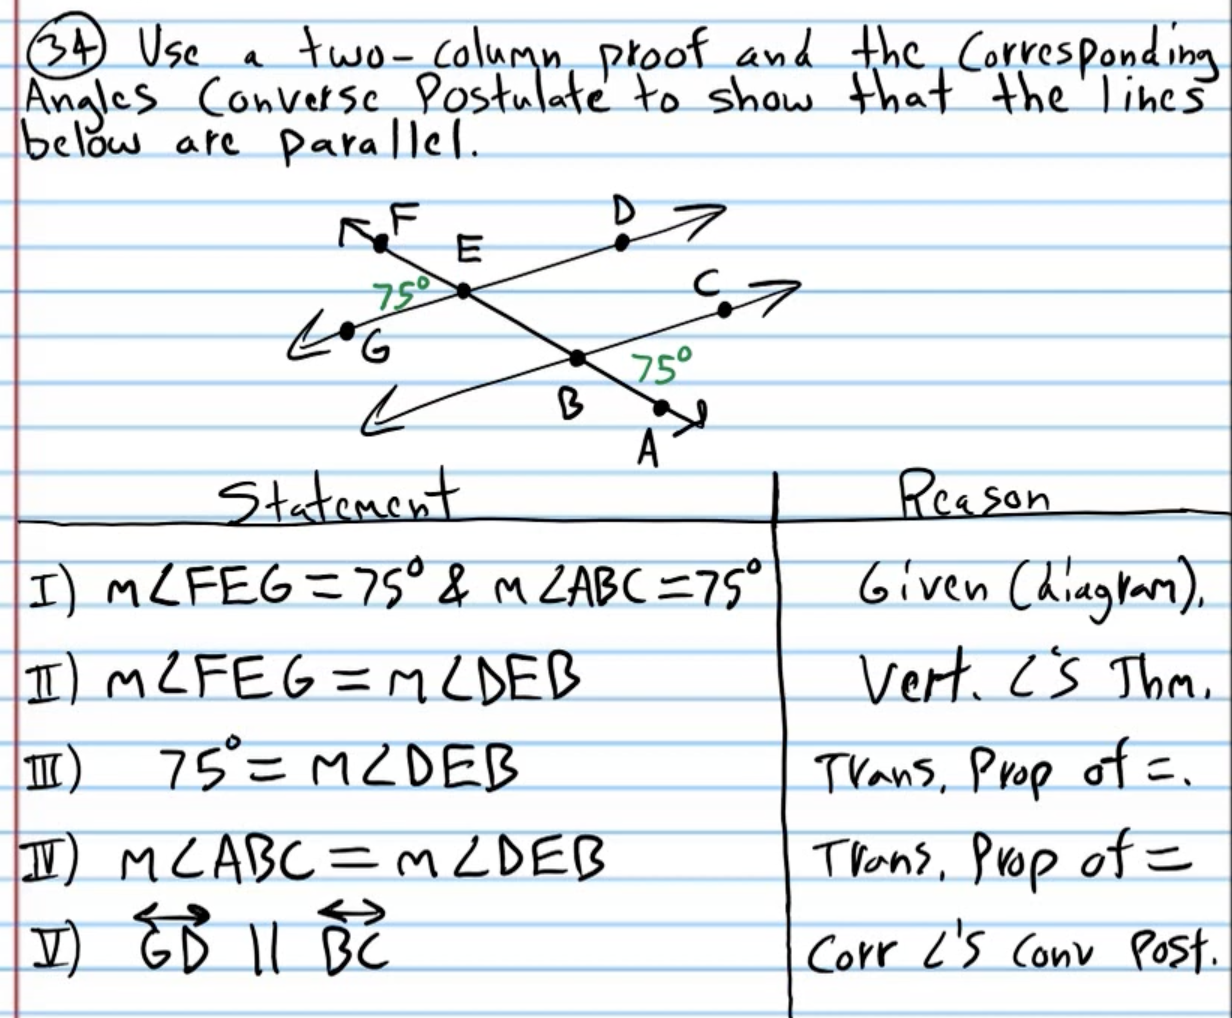 34 Use a two-column proof and the Corresponding
Angles Converse Postulate to show that the lines
below are parallel.
F
E
D
C
75°
G
75°
B
A
Statement Reason
I) m∠FEG = 75° & m∠ABC = 75° Given (diagram).
II) m∠FEG = m∠DEB Vert. ∠'s Thm.
III) 75° = m∠DEB Trans. Prop of =.
IV) m∠ABC = m∠DEB Trans. Prop of =
V) GD || BC Corr ∠'s Conv Post.